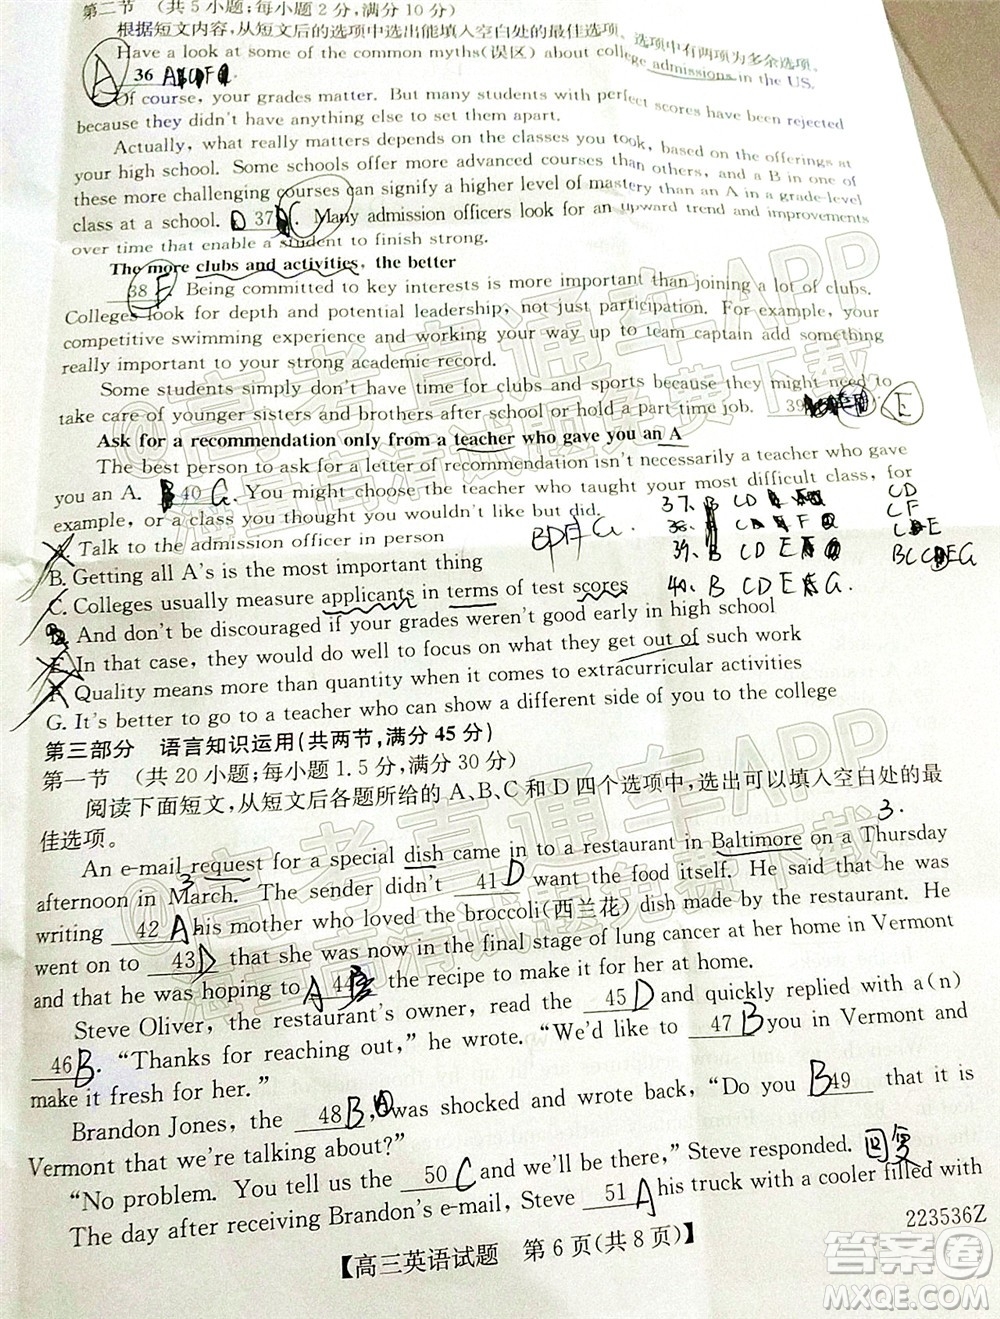 第二节 (共5小题;每小题2分,满分10分)
根据短文内容,从短文后的选项中选出能填入空白处的最佳选项。选项中有两项为多余选项。
Have a look at some of the common myths(误区) about college admissions in the US.
A 36
Of course, your grades matter. But many students with perfect scores have been rejected
because they didn't have anything else to set them apart.
Actually, what really matters depends on the classes you took, based on the offerings at
your high school. Some schools offer more advanced courses than others, and a B in one of
these more challenging courses can signify a higher level of mastery than an A in a grade-level
class at a school. D 37 C. Many admission officers look for an upward trend and improvements
over time that enable a student to finish strong.
The more clubs and activities, the better
38 F. Being committed to key interests is more important than joining a lot of clubs.
Colleges look for depth and potential leadership, not just participation. For example, your
competitive swimming experience and working your way up to team captain add something
really important to your strong academic record.
Some students simply don't have time for clubs and sports because they might need to
take care of younger sisters and brothers after school or hold a part-time job. 39 E
Ask for a recommendation only from a teacher who gave you an A
The best person to ask for a letter of recommendation isn't necessarily a teacher who gave
you an A. 40 G. You might choose the teacher who taught your most difficult class, for
example, or a class you thought you wouldn't like but did.
A. Talk to the admission officer in person
B. Getting all A's is the most important thing
C. Colleges usually measure applicants in terms of test scores
D. And don't be discouraged if your grades weren't good early in high school
E. In that case, they would do well to focus on what they get out of such work
F. Quality means more than quantity when it comes to extracurricular activities
G. It's better to go to a teacher who can show a different side of you to the college
37. B CD
38. CD F
39. B CD E
40. B CD E G.
CD
CF
第三部分 语言知识运用(共两节,满分45分)
第一节 (共20小题;每小题1.5分,满分30分)
阅读下面短文,从短文后各题所给的A、B、C和D四个选项中,选出可以填入空白处的最
佳选项。
3.
An e-mail request for a special dish came in to a restaurant in Baltimore on a Thursday
afternoon in March. The sender didn't 41 D want the food itself. He said he was
3
writing 42 A his mother who loved the broccoli(西兰花) dish made by the restaurant. He
went on to 43 D that she was now in the final stage of lung cancer at her home in Vermont
and that he was hoping to A 44 the recipe to make it for her at home.
Steve Oliver, the restaurant's owner, read the 45 D and quickly replied with a(n)
46 B. “Thanks for reaching out,” he wrote. “We'd like to 47 B you in Vermont and
make it fresh for her.”
Brandon Jones, the 48 B, was shocked and wrote back, “Do you B 49 that it is
Vermont that we're talking about?”
“No problem. You tell us the 50 C and we'll be there,” Steve responded. 回复
The day after receiving Brandon's e-mail, Steve 51 A his truck with a cooler filled with
223536Z
【高三英语试题 第6页(共8页)】
@高考直通车APP
海量高清试题免费下载
@高考直通车APP
海量高清试题免费下载
答案圈
MXQE.COM